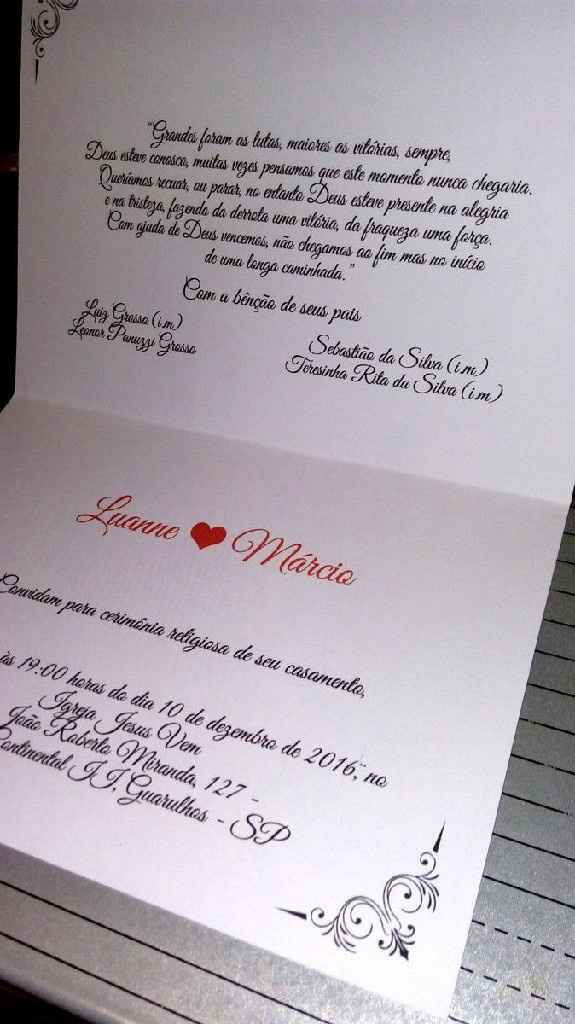 "Grandes foram as lutas, maiores as vitórias, sempre,
Deus esteve conosco, muitas vezes pensamos que este momento nunca chegaria.
Queríamos recuar, ou parar, no entanto Deus esteve presente na alegria
e na tristeza, fazendo da derrota uma vitória, da fraqueza uma força.
Com ajuda de Deus vencemos, não chegamos ao fim mas no início
de uma longa caminhada."
Com a bênção de seus pais
Luiz Grosso (i.m.)
Leonor Panuzzi Grosso
Sebastião da Silva (i.m)
Teresinha Rita da Silva (i.m)
Luanne ❤ Márcio
Convidam para cerimônia religiosa de seu casamento,
às 19:00 horas do dia 10 de dezembro de 2016, na
Igreja Jesus Vem
João Roberto Miranda, 127 -
Continental II, Guarulhos - SP